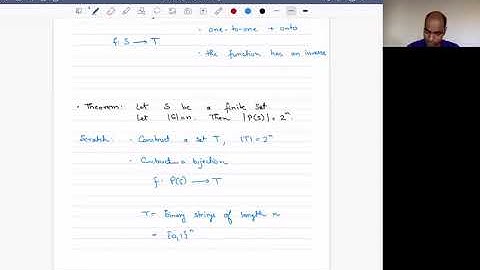 · one-to-one + onto
f: S → T
· the function has an inverse
· Theorem: Let S be a finite set
Let |S|=n. Then |P(S)| = 2^n.
Scratch: · Construct a set T, |T|=2^n
· Construct a bijection
f: P(S) → T
T = Binary strings of length n
= {0,1}^n